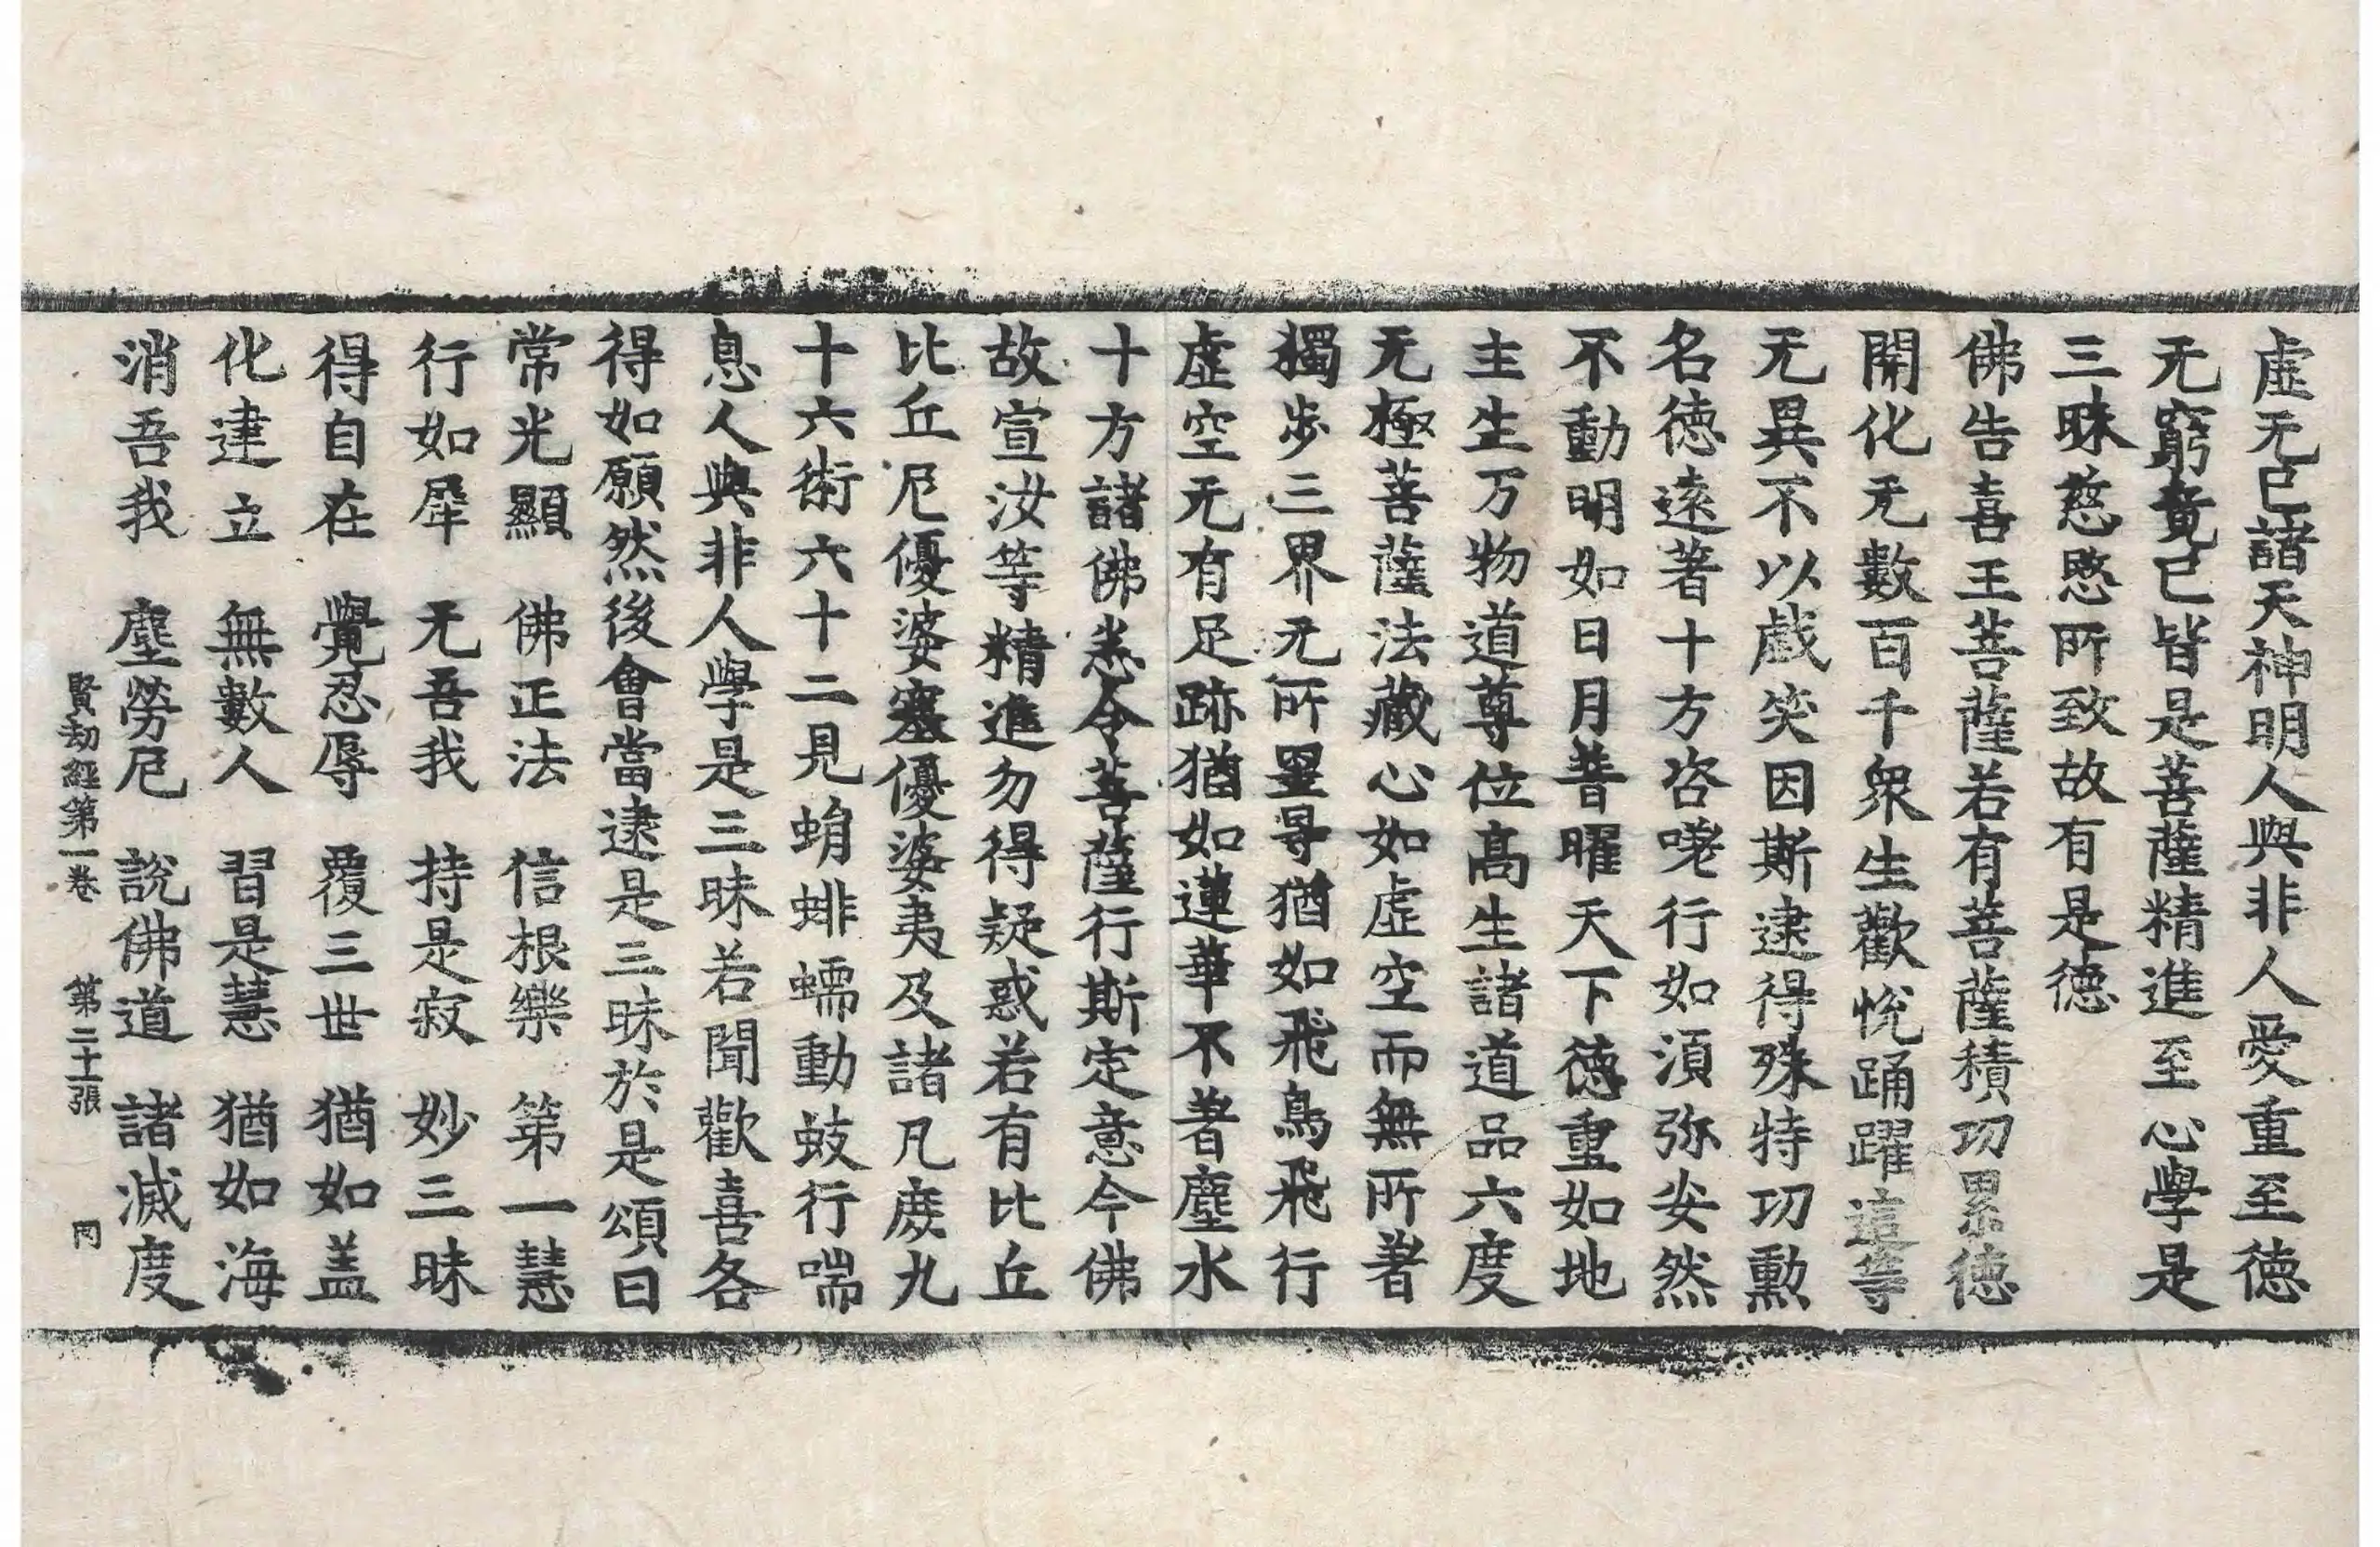 虛无已諸天神明人與非人愛重至德
无窮竟已皆是菩薩精進至心學是
三昧慈愍所致故有是德
佛告喜王菩薩若有菩薩積功累德
開化无數百千衆生歡悅踊躍這等
无異不以戱笑因斯逮得殊特功勲
名德遠著十方咨嗟行如湏弥安然
不動明如日月普曜天下德重如地
主生万物道尊位髙生諸道品六度
无極菩薩法藏心如虛空而無所著
獨步三界无所罣㝵猶如飛鳥飛行
虛空无有足跡猶如蓮華不著塵水
十方諸佛恙令菩薩行斯定意今佛
故宣汝等精進勿得疑惑若有比丘
比丘尼優婆塞優婆夷及諸凡庻九
十六術六十二見蜎蜚蠕動蚑行喘
息人與非人學是三昧若聞歡喜各
得如願然後會當逮是三昧於是頌曰
常光顯　佛正法　信根樂　第一慧
行如犀　无吾我　持是寂　妙三昧
得自在　覺忍辱　覆三世　猶如盖
化建立　無數人　習是慧　猶如海
消吾我　塵勞尼　說佛道　諸滅度
賢劫經第一卷　第二十張　冈